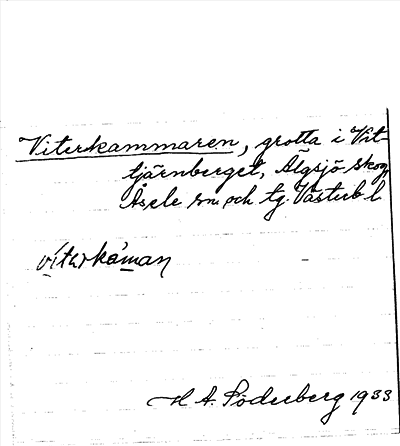 Viterkammaren, grotta i Vit-
tjärnberget, Älgsjö skog
Åsele sn. och tg. Västerb l
víterkàman
H A. Söderberg 1933